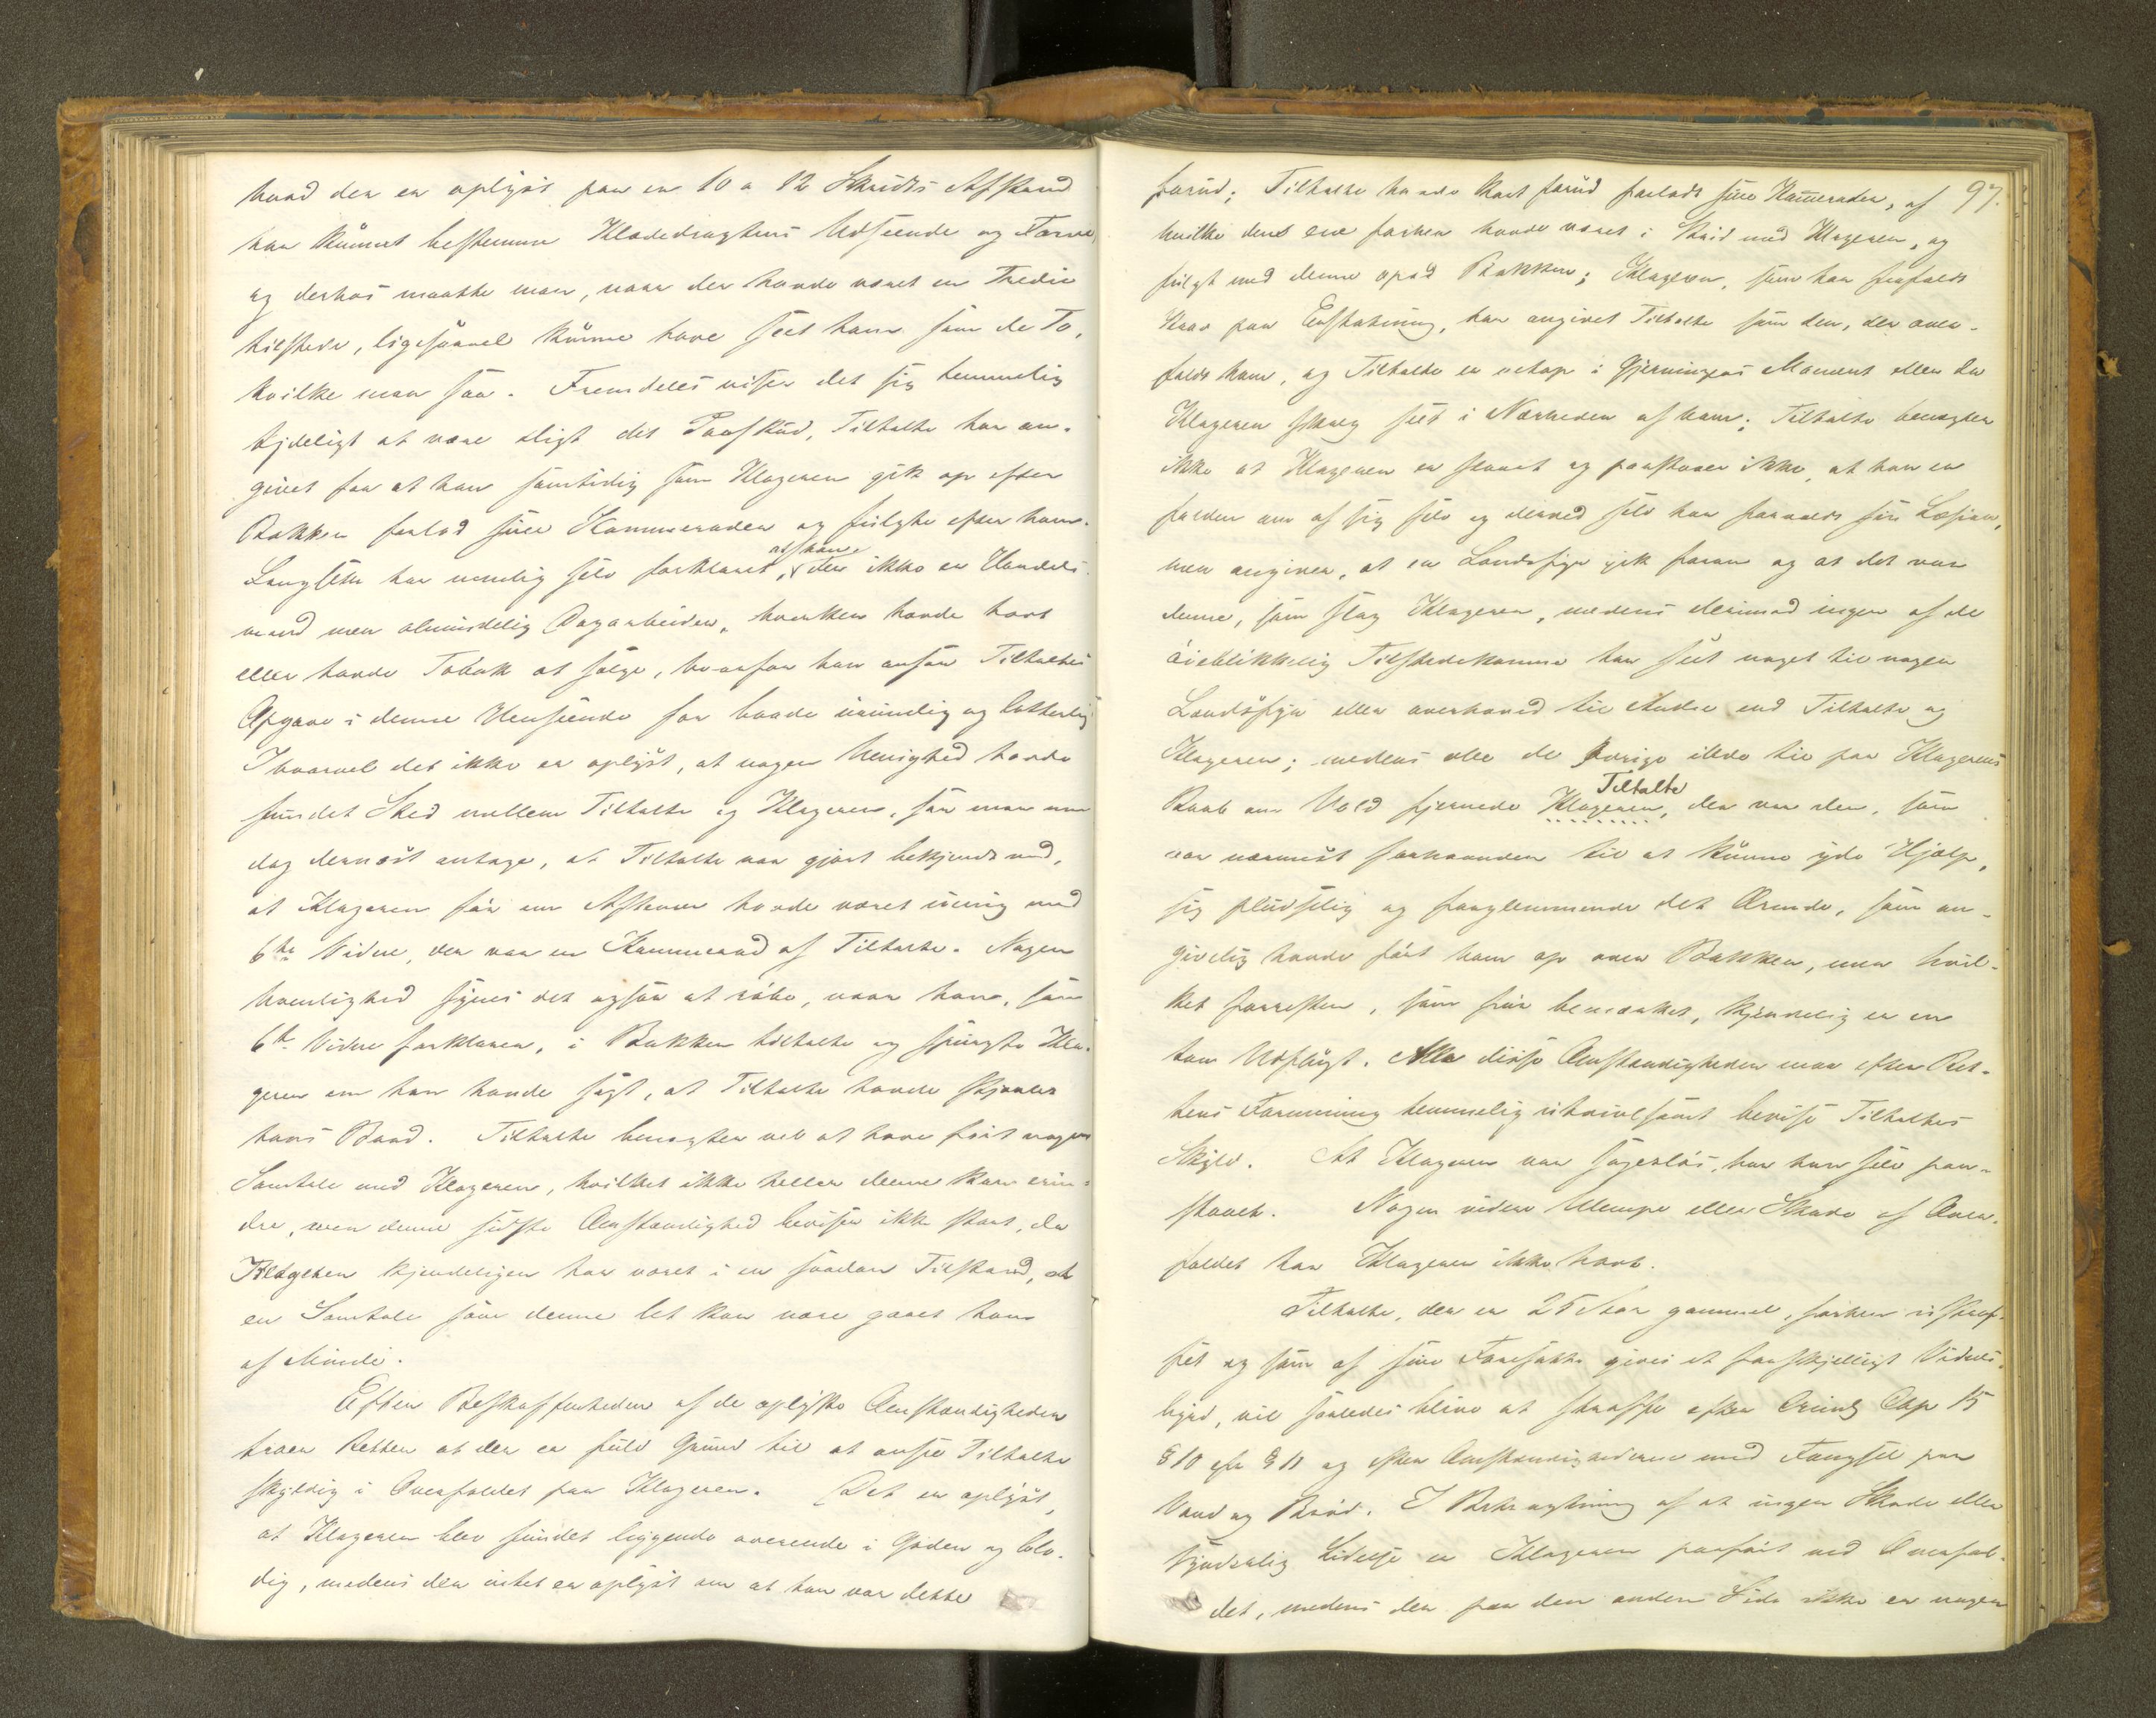 hvad der er oplyst paa en 10 a 12 Skridts Afstand
har kunnet bestemme Klædedragtens Udseende og Farve,
og derhos maatte man, naar der havde været en Tredie
tilstede, ligesaavel kunne have seet ham som de To,
hvilke man saa. Fremdeles viser det sig temmelig
tydeligt at være sligt det Paaskud, Tiltalte har an-
givet for at han samtidig som Klageren gik op efter
Bakken forlod sine Kammerader og fulgte efter ham.
Langseth har nemlig selv forklaret, at han, der ikke er Handels-
mand men almindelig Dagarbeider, hverken havde havt
eller havde Tobak at sælge, hvorfor han ansaa Tiltaltes
Opgave i denne Henseende for baade urimelig og latterlig.
Ihvorvel det ikke er oplyst, at nogen Uenighed havde
fundet Sted mellem Tiltalte og Klageren, saa maa man
dog dernæst antage, at Tiltalte var gjort bekjendt med,
at Klageren før om Aftenen havde været uenig med
6te Vidne, der var en Kammerad af Tiltalte. Nogen
Uvenlighed synes det ogsaa at røbe, naar han, som
6te Vidne forklarer, i Bakken tiltalte og spurgte Kla-
geren om han havde sagt, at Tiltalte havde stjaalet
hans Baad. Tiltalte benægter vel at have ført nogen
Samtale med Klageren, hvilket ikke heller denne kan erin-
dre, men denne sidste Omstændighed beviser ikke stort, da
Klageren kjendeligen har været i en saadan Tilstand, at
en Samtale som denne let kan være gaaet ham
af Minde.
Efter Beskaffenheden af de oplyste Omstændigheder
troer Retten at der er fuld Grund til at ansee Tiltalte
skyldig i Overfaldet paa Klageren. Det er oplyst,
at Klageren blev fundet liggende overende i Gaden og blo-
dig, medens der intet er oplyst om at han var dette
97.
forud; Tiltalte havde kort forud forladt sine Kammerader, af
hvilke den ene forhen havde været i Strid med Klageren, og
fulgt med denne opad Bakken; Klageren, som har frafaldt
Krav paa Erstatning, har angivet Tiltalte som den, der over-
faldt ham, og Tiltalte er netop i Gjerningens Moment eller da
Klageren skreg seet i Nærheden af ham; Tiltalte benægter
ikke at Klageren er slaaet og paastaaer ikke, at han er
falden om af sig selv og derved selv har forvoldt sin Læsion,
men angiver, at en Landsfyr gik foran og at det var
denne, som slog Klageren, medens derimod ingen af de
øieblikkelig Tilstedekomne har seet noget til nogen
Landsfyr eller overhoved til Andre end Tiltalte og
Klageren; medens alle de øvrige ilede til paa Klagerens
Raab om Vold fjernede Klageren, Tiltalte der var den, som
var nærmest forhaanden til at kunne yde Hjælp,
sig pludselig og forglemmende det Ærende, som an-
givelig havde ført ham op over Bakken, men hvil-
ket forresten, som før bemærket, kjendelig er en
tom Udflugt. Alle disse Omstændigheder maa efter Ret-
tens Formening temmelig utvivlsomt bevise Tiltaltes
Skyld. At Klageren var sagesløs, har han selv paa-
staaet. Nogen videre Ulempe eller Skade af Over-
faldet har Klageren ikke havt.
Tiltalte, der er 25 Aar gammel, forhen ustraf-
fet og som af sine Foresatte gives et forskjelligt Vidnes-
byrd, vil saaledes blive at straffe efter Crimlg Cap 15
§ 10 cfr § 11 og efter Omstændighederne med Fængsel paa
Vand og Brød. I Betragtning af at ingen Skade eller
synderlig Lidelse er Klageren paaført ved Overfal-
det, medens der paa den anden Side ikke er nogen